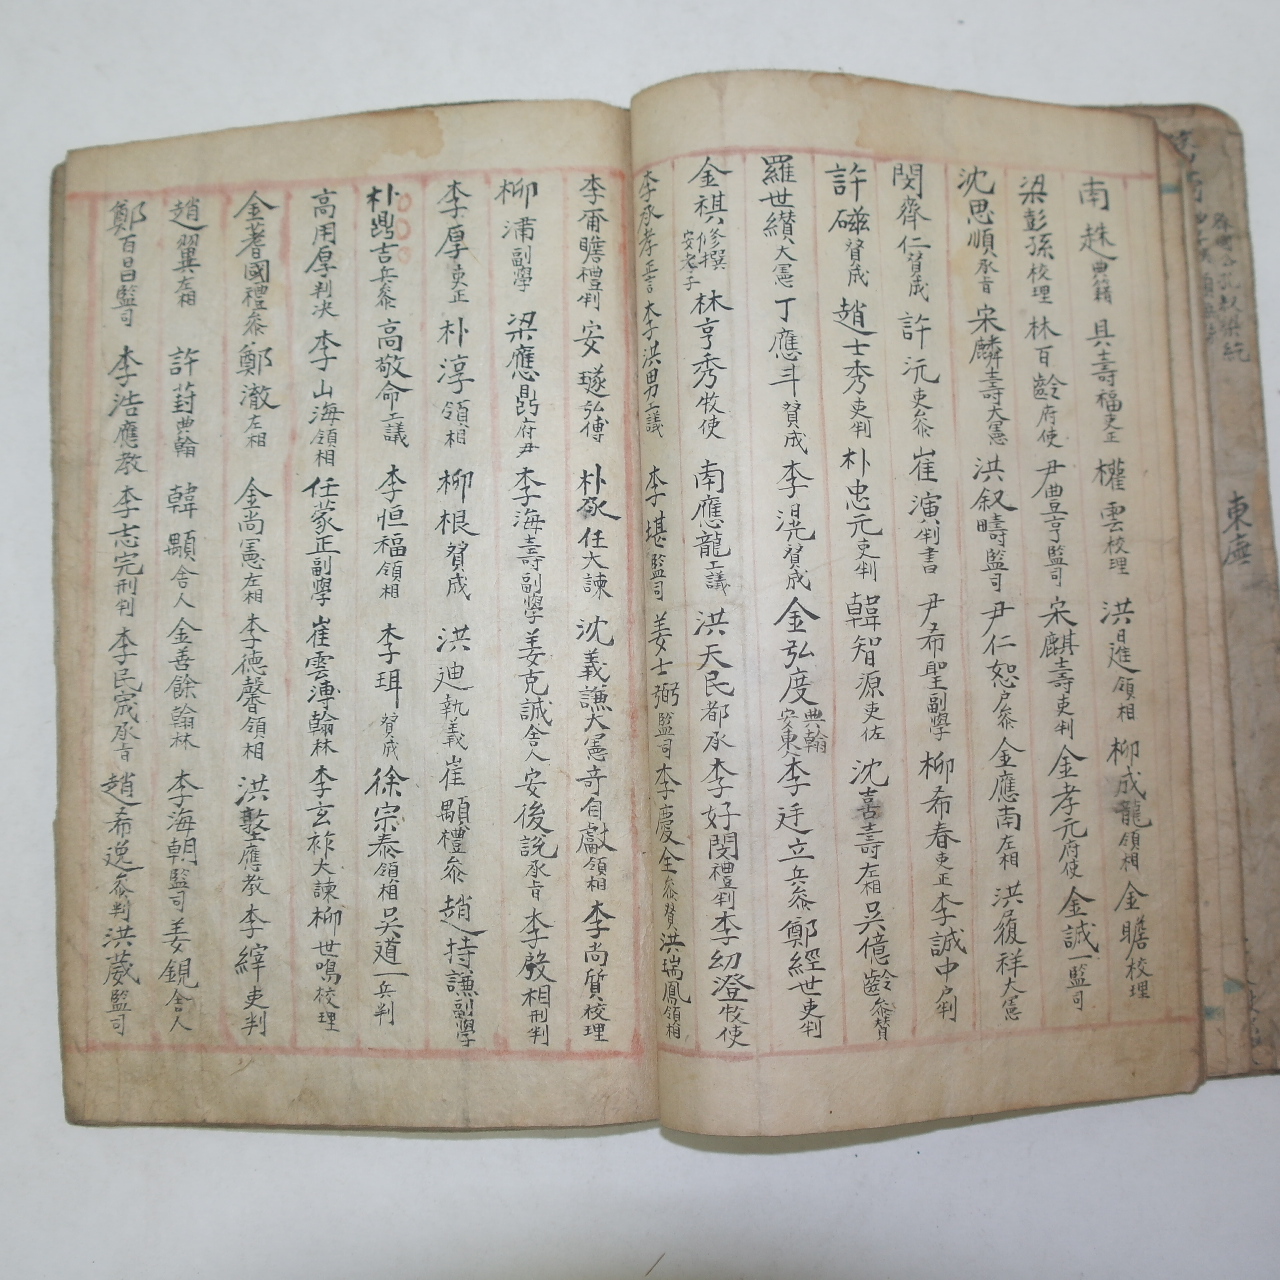 南趎典籍 具壽福吏正 權雲校理 洪暹領相 柳成龍領相 金瞻校理
梁彭孫校理 林百齡府使 尹豊亨監司 宋麒壽吏判 金孝元府使 金誠一監司
沈思順承旨 宋麟壽大憲 洪叙疇監司 尹仁恕戶叅 金應南左相 洪履祥大憲
閔齊仁賛成 許沆吏叅 崔演判書 尹希聖副學 柳希春吏正 李誠中戶判
許磁賛成 趙士秀吏判 朴忠元吏判 韓智源吏佐 沈喜壽左相 吳億齡叅賛
羅世纘大憲 丁應斗賛成 李滉賛成 金弘度典翰安東人 李廷立兵叅 鄭經世吏判
金祺修撰安老子 林亨秀牧使 南應龍工議 洪天民都承 李好閔禮判 李幼澄牧使
李承孝 李洪男工議 李堪監司 姜士弼監司 李慶全叅賛 洪瑞鳳領相
李爾瞻禮判 安璲弘博 朴承任大諫 沈義謙大憲 奇自獻領相 李尚質校理
柳潚副學 梁應鼎府尹 李海壽副學 姜克誠舍人 安後說承旨 李殷相刑判
李厚吏正 朴淳領相 柳根賛成 洪迪執義 崔顯禮叅 趙持謙副學
朴鼎吉兵叅 高敬命工議 李恒福領相 李珥賛成 徐宗泰領相 吳道一兵判
高用厚判决 李山海領相 任蒙正副學 崔雲溥翰林 李玄祚大諫 柳世鳴校理
金蓍國禮叅 鄭澈左相 金尚憲左相 李德馨領相 洪墪應教 李縡吏判
趙翼左相 許葑典翰 韓顯舍人 金善餘翰林 李海朝監司 姜鋧舍人
鄭百昌監司 李浩應教 李志完刑判 李民宬承旨 趙希逸叅判 洪葳監司
東廡